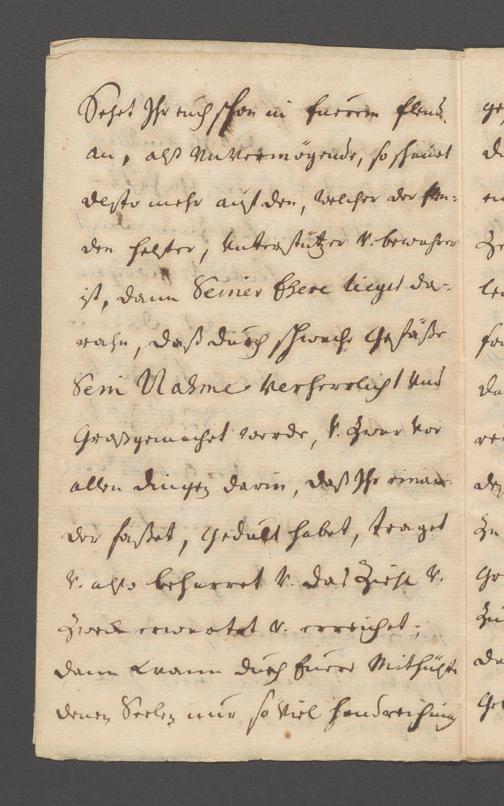 Sehet Ihr euch schon in Euerem Elend
an, alß Unvermögende, so schauet
desto mehr auf den, welcher der Elen-
den helffer, Unterstützer v. bewahrer
ist, dann Seiner Ehere lieget da-
rahn, daß durch schwache Gefäße
Sein Nahme Verherrlicht und
Groß gemachet werde, v. zwar vor
allen dingen darin, daß Ihr einan-
der faßet, gedult habet, traget
v. also beharret v. das Ziehl v.
Zweck erwartet v. erreichet;
dann kann durch Euere
denen Seelen nur so viel handreichung